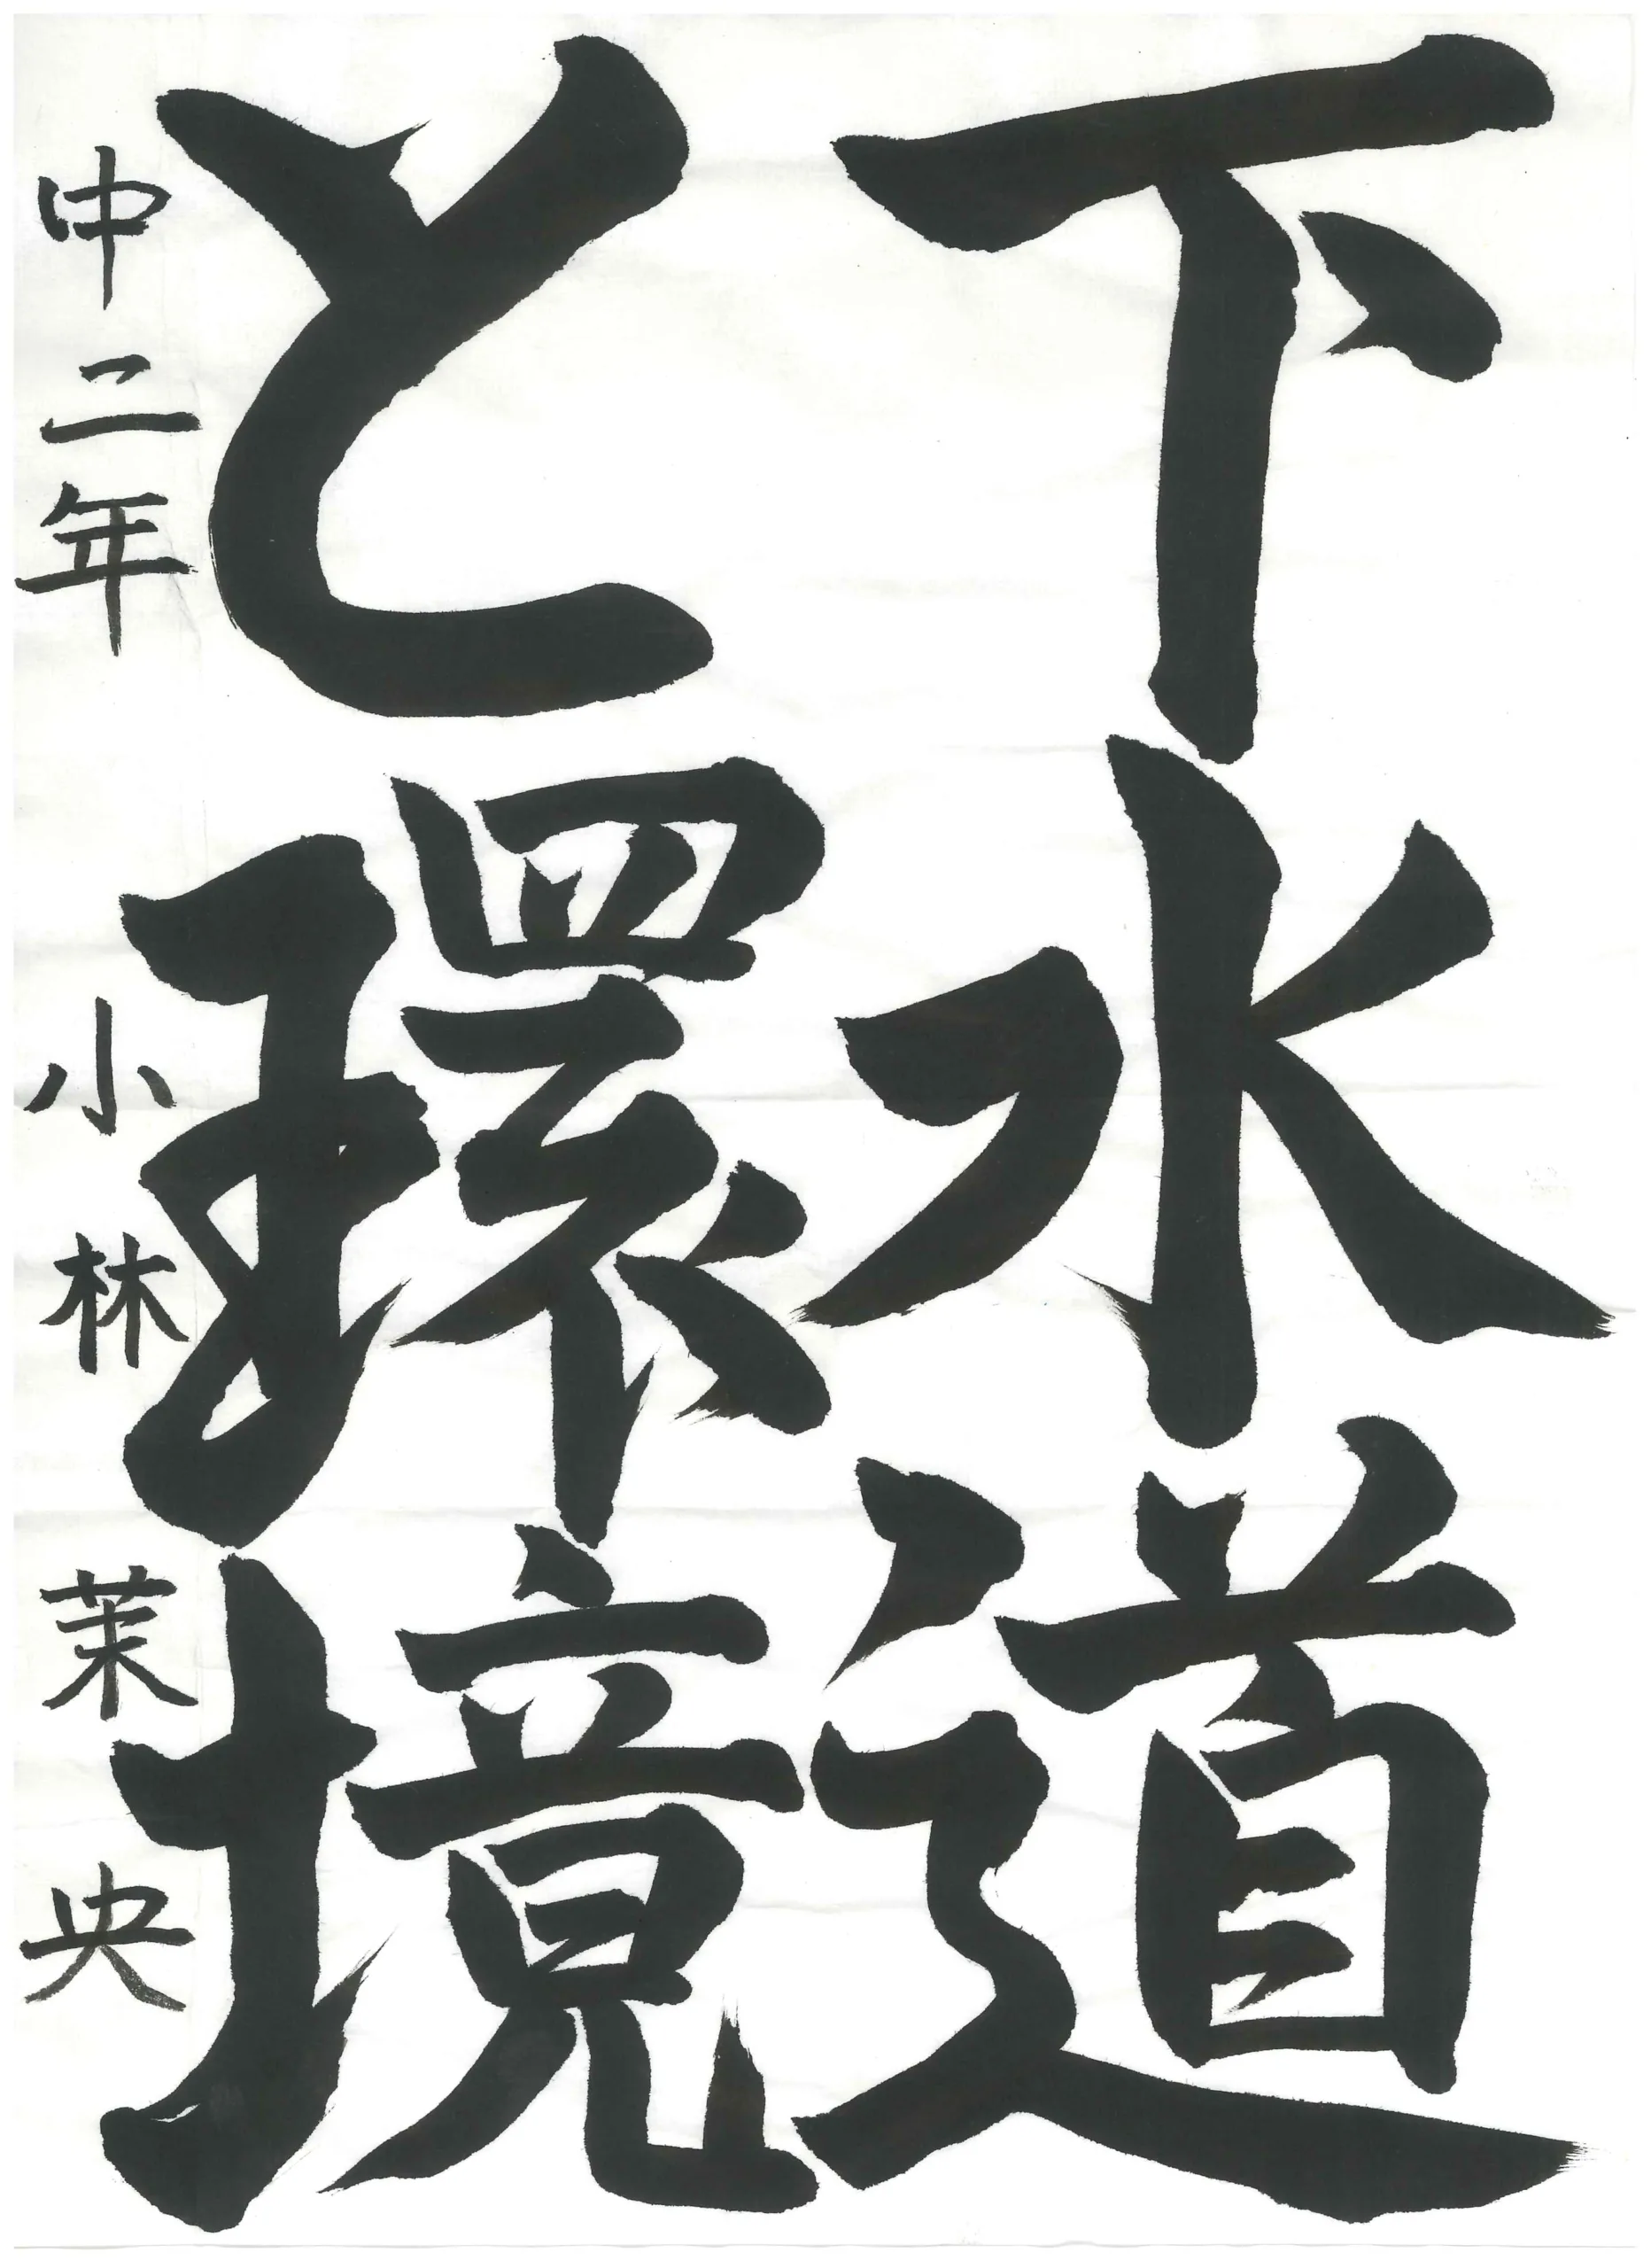 下水道
と環境
中二年 小林茉央